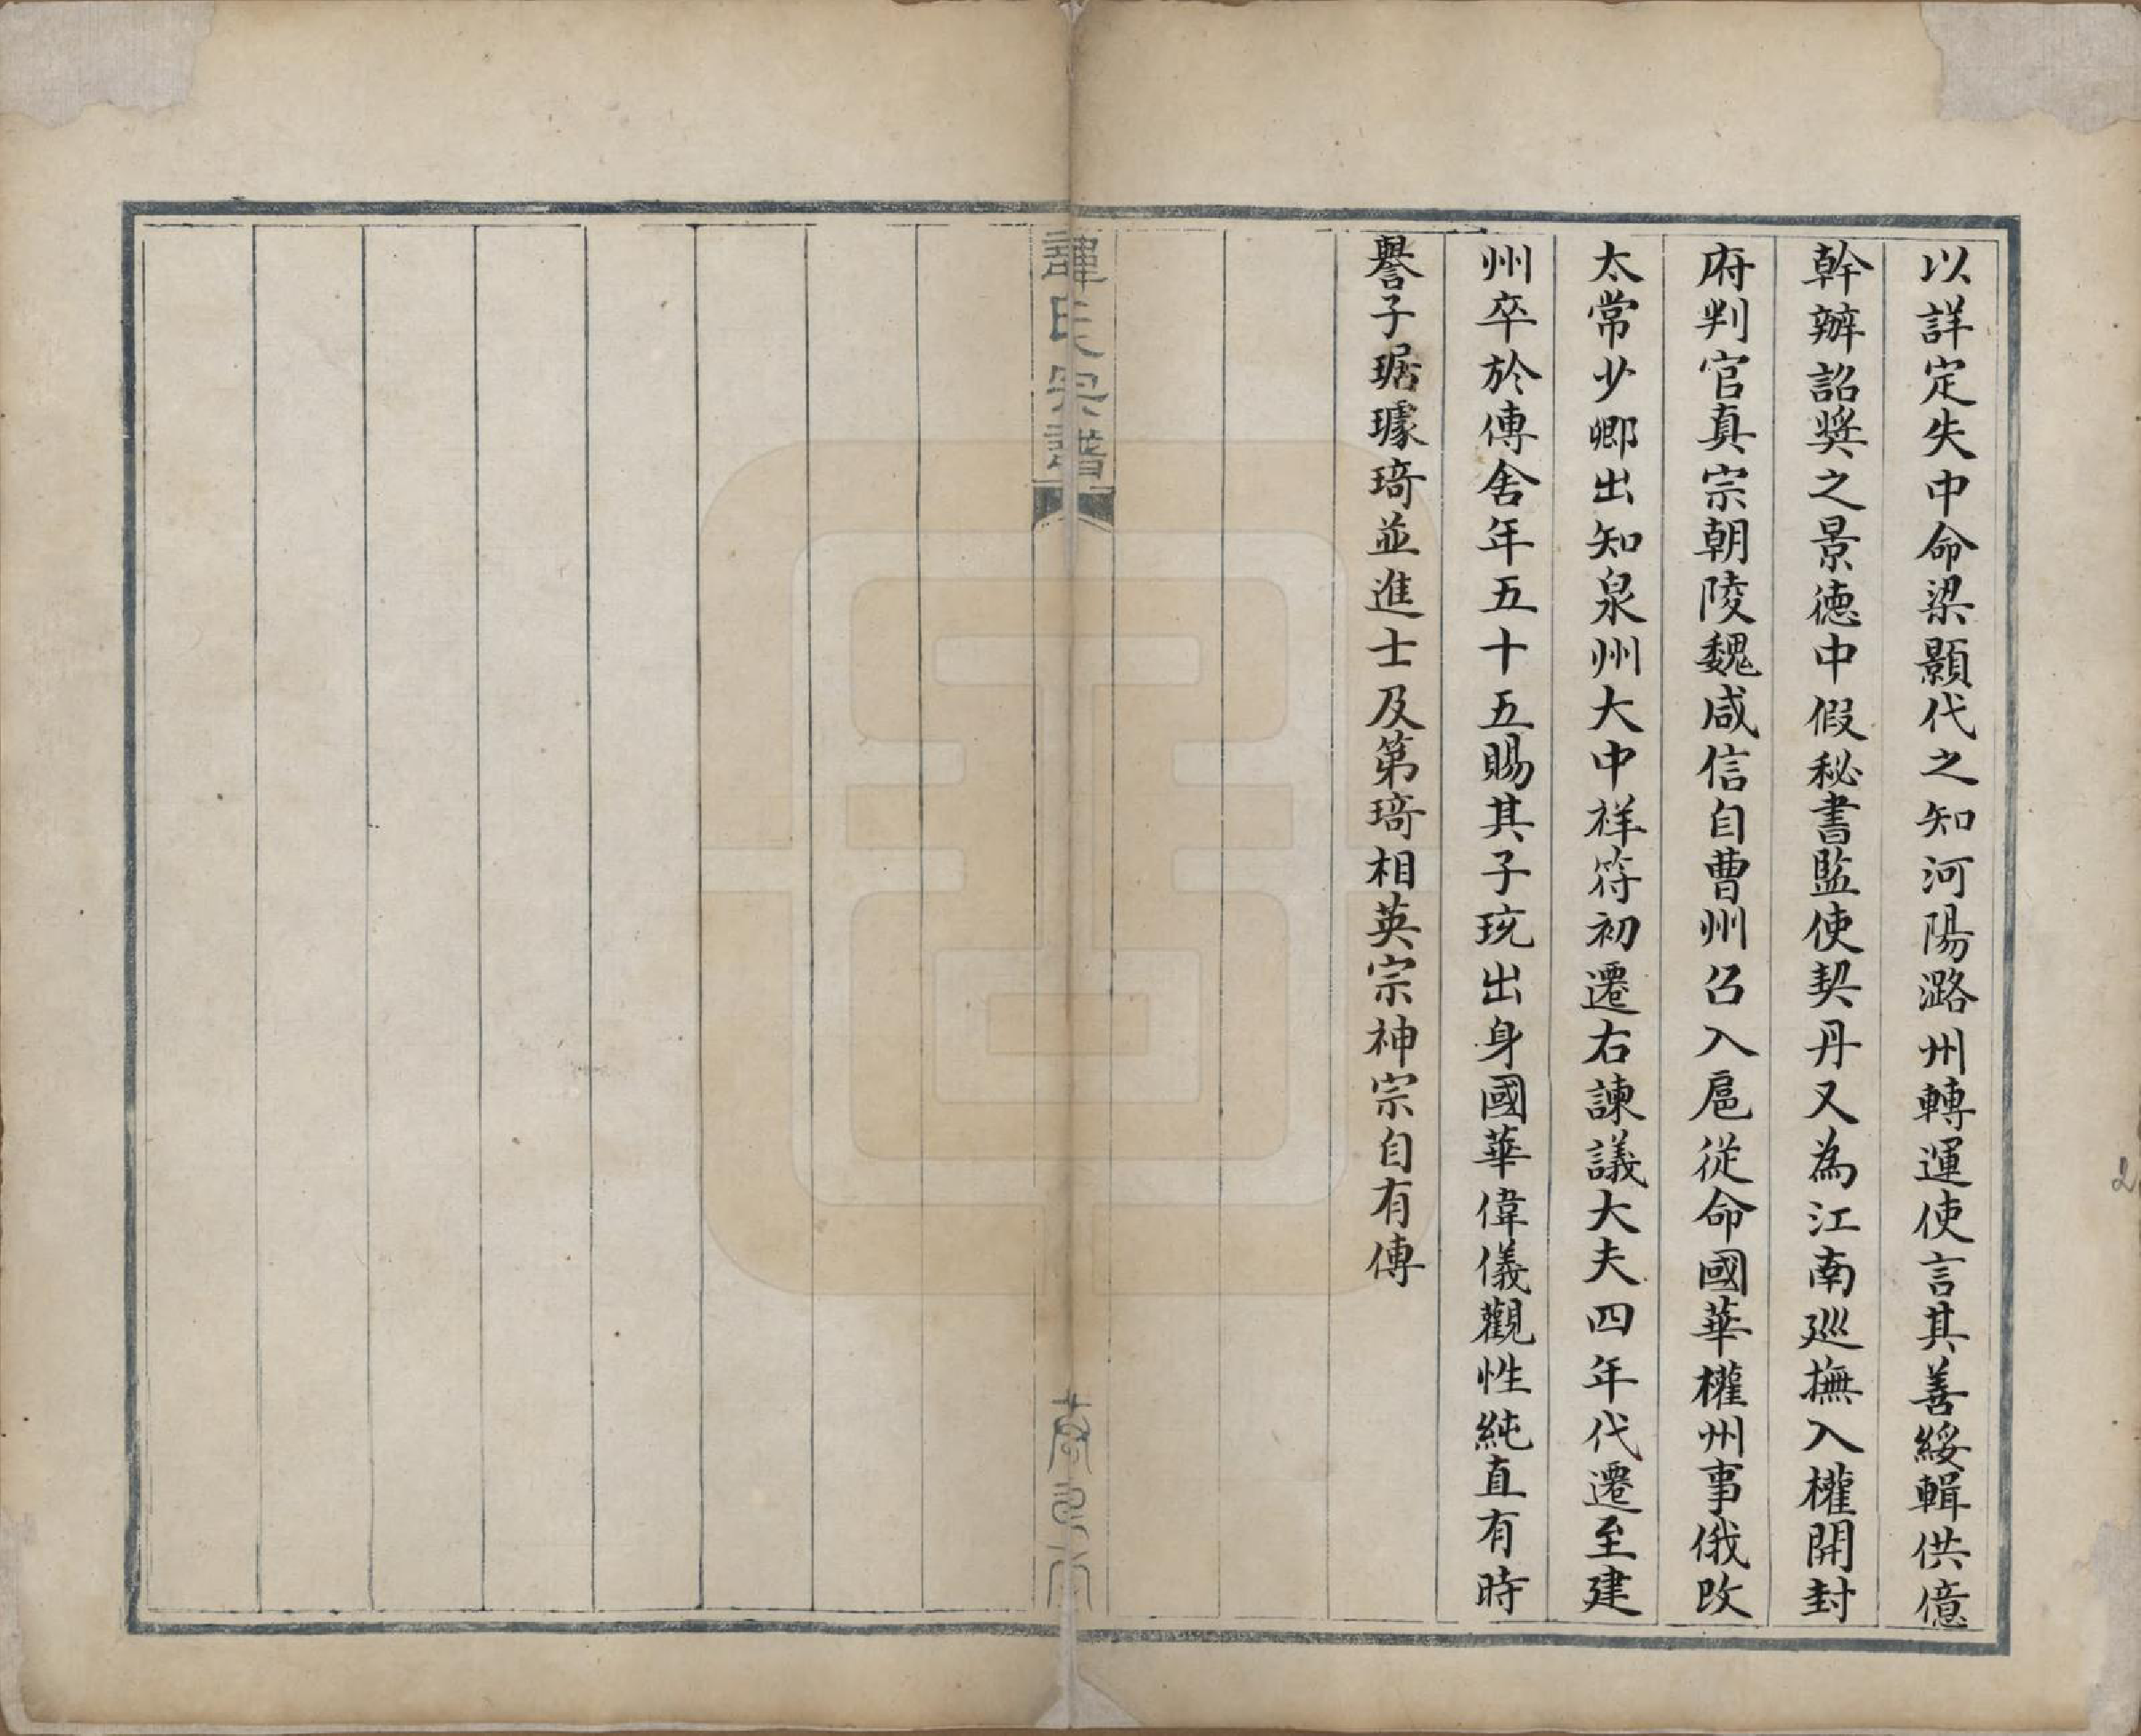 以詳定失中命梁顥代之知河陽潞州轉運使言其善綏輯供億
幹辦詔獎之景德中假秘書監使契丹又為江南巡撫入權開封
府判官真宗朝陵魏咸信自曹州召入扈從命國華權州事俄改
太常少卿出知泉州大中祥符初遷右諫議大夫四年代遷至建
州卒於傳舍年五十五賜其子琉出身國華偉儀觀性純直有時
譽子琚璩琦並進士及第琦相英宗神宗自有傳
韓氏宗譜